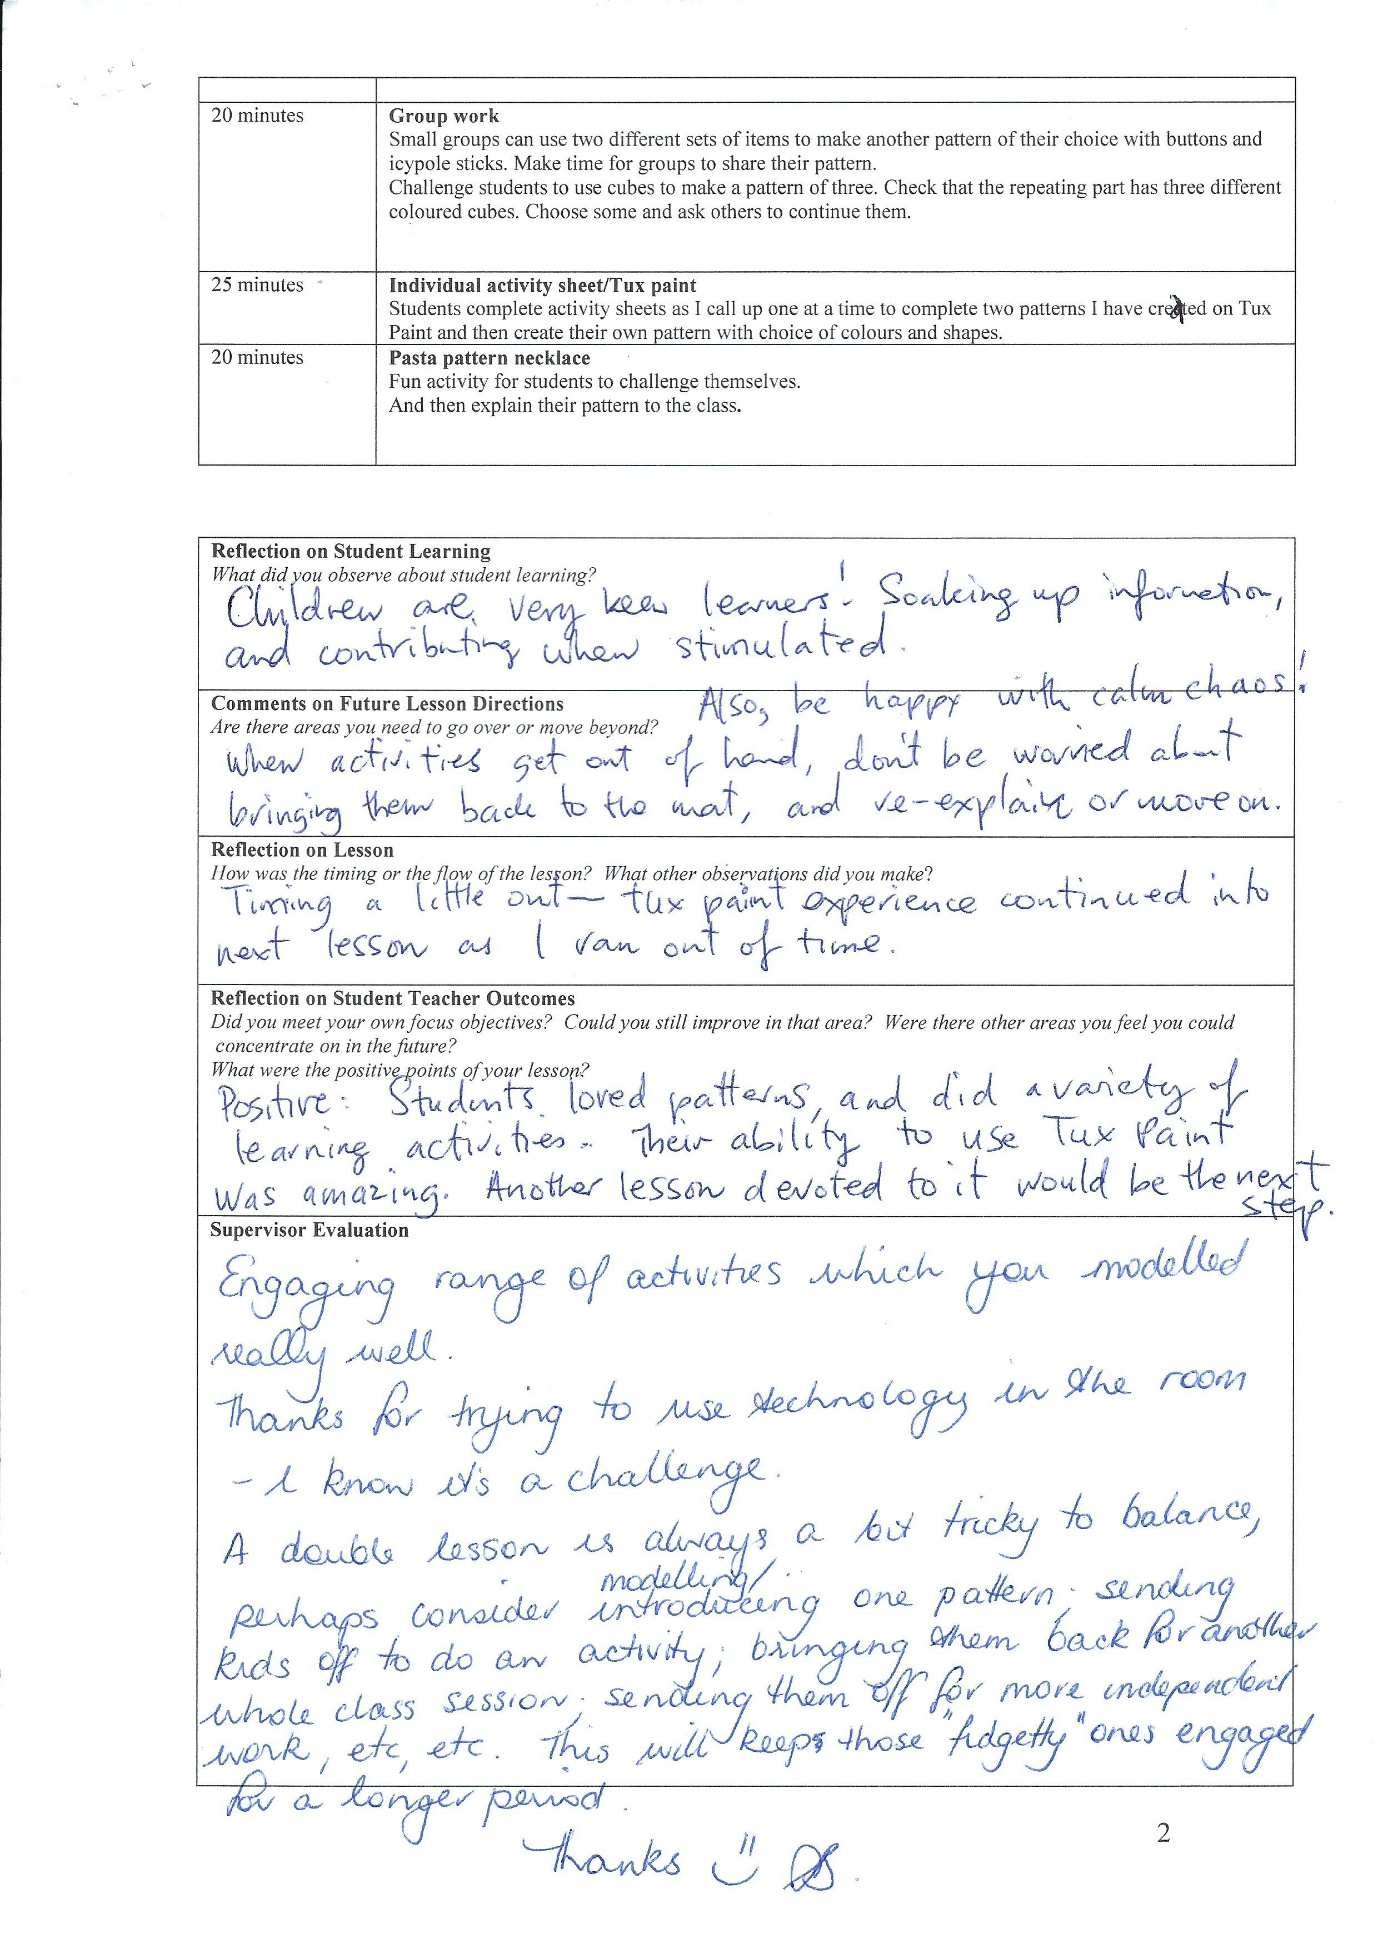 20 minutes
Group work
Small groups can use two different sets of items to make another pattern of their choice with buttons and
icypole sticks. Make time for groups to share their pattern.
Challenge students to use cubes to make a pattern of three. Check that the repeating part has three different
coloured cubes. Choose some and ask others to continue them.
25 minutes
Individual activity sheet/Tux paint
Students complete activity sheets as I call up one at a time to complete two patterns I have created on Tux
Paint and then create their own pattern with choice of colours and shapes.
20 minutes
Pasta pattern necklace
Fun activity for students to challenge themselves.
And then explain their pattern to the class.
Reflection on Student Learning
What did you observe about student learning?
Children are very keen learners! Soaking up information,
and contributing when stimulated.
Comments on Future Lesson Directions
Also, be happy with calm chaos!
Are there areas you need to go over or move beyond?
When activities get out of hand, don't be worried about
bringing them back to the mat, and re-explain or move on.
Reflection on Lesson
How was the timing or the flow of the lesson? What other observations did you make?
Timing a little out — tux paint experience continued into
next lesson as I ran out of time.
Reflection on Student Teacher Outcomes
Did you meet your own focus objectives? Could you still improve in that area? Were there other areas you feel you could
concentrate on in the future?
What were the positive points of your lesson?
Positive: Students loved patterns, and did a variety of
learning activities. Their ability to use Tux Paint
was amazing. Another lesson devoted to it would be the next
step.
Supervisor Evaluation
Engaging range of activities which you modelled
really well.
Thanks for trying to use technology in the room
- I know it's a challenge.
A double lesson is always a bit tricky to balance,
modelling/
perhaps consider introducing one pattern; sending
kids off to do an activity; bringing them back for another
whole class session; sending them off for more independent
work, etc, etc. This will keeps those "fidgetty" ones engaged
for a longer period.
2
Thanks